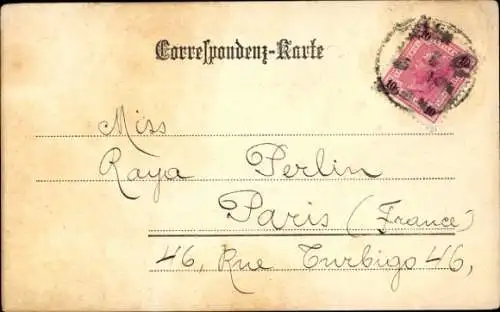 Correspondenz-Karte
Miss
Raya Perlin
Paris (France)
46, Rue Turbigo 46,